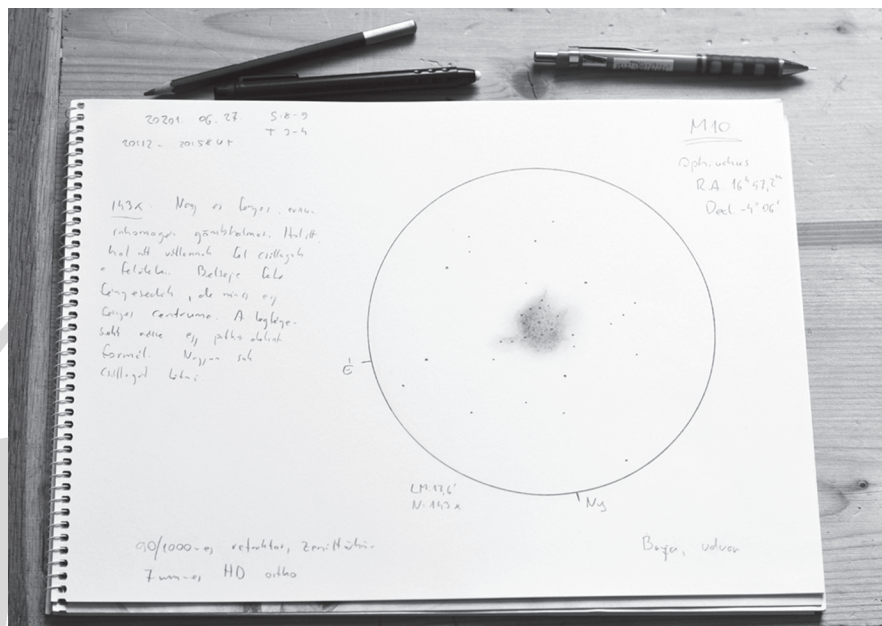 20201. 06. 27 S: 8-9
T 3-4
M10
Ophiuchus
R.A. 16h 57,2m
Decl. -4° 06'
143x. Nagy és fényes,
inhomogén gömbhalmaz. Hol itt,
hol ott villannak fel csillagok
a felületén. Belseje felé
fényesedik, de nincs egy
fényes centruma. A legfénye-
sebb része egy
formát. Nagyon sok
csillagot látni
É
LM: 17,6'
N: 143x
Ny
90/1000-es refraktor, zenittükör
7 mm-es HD ortho
udvar